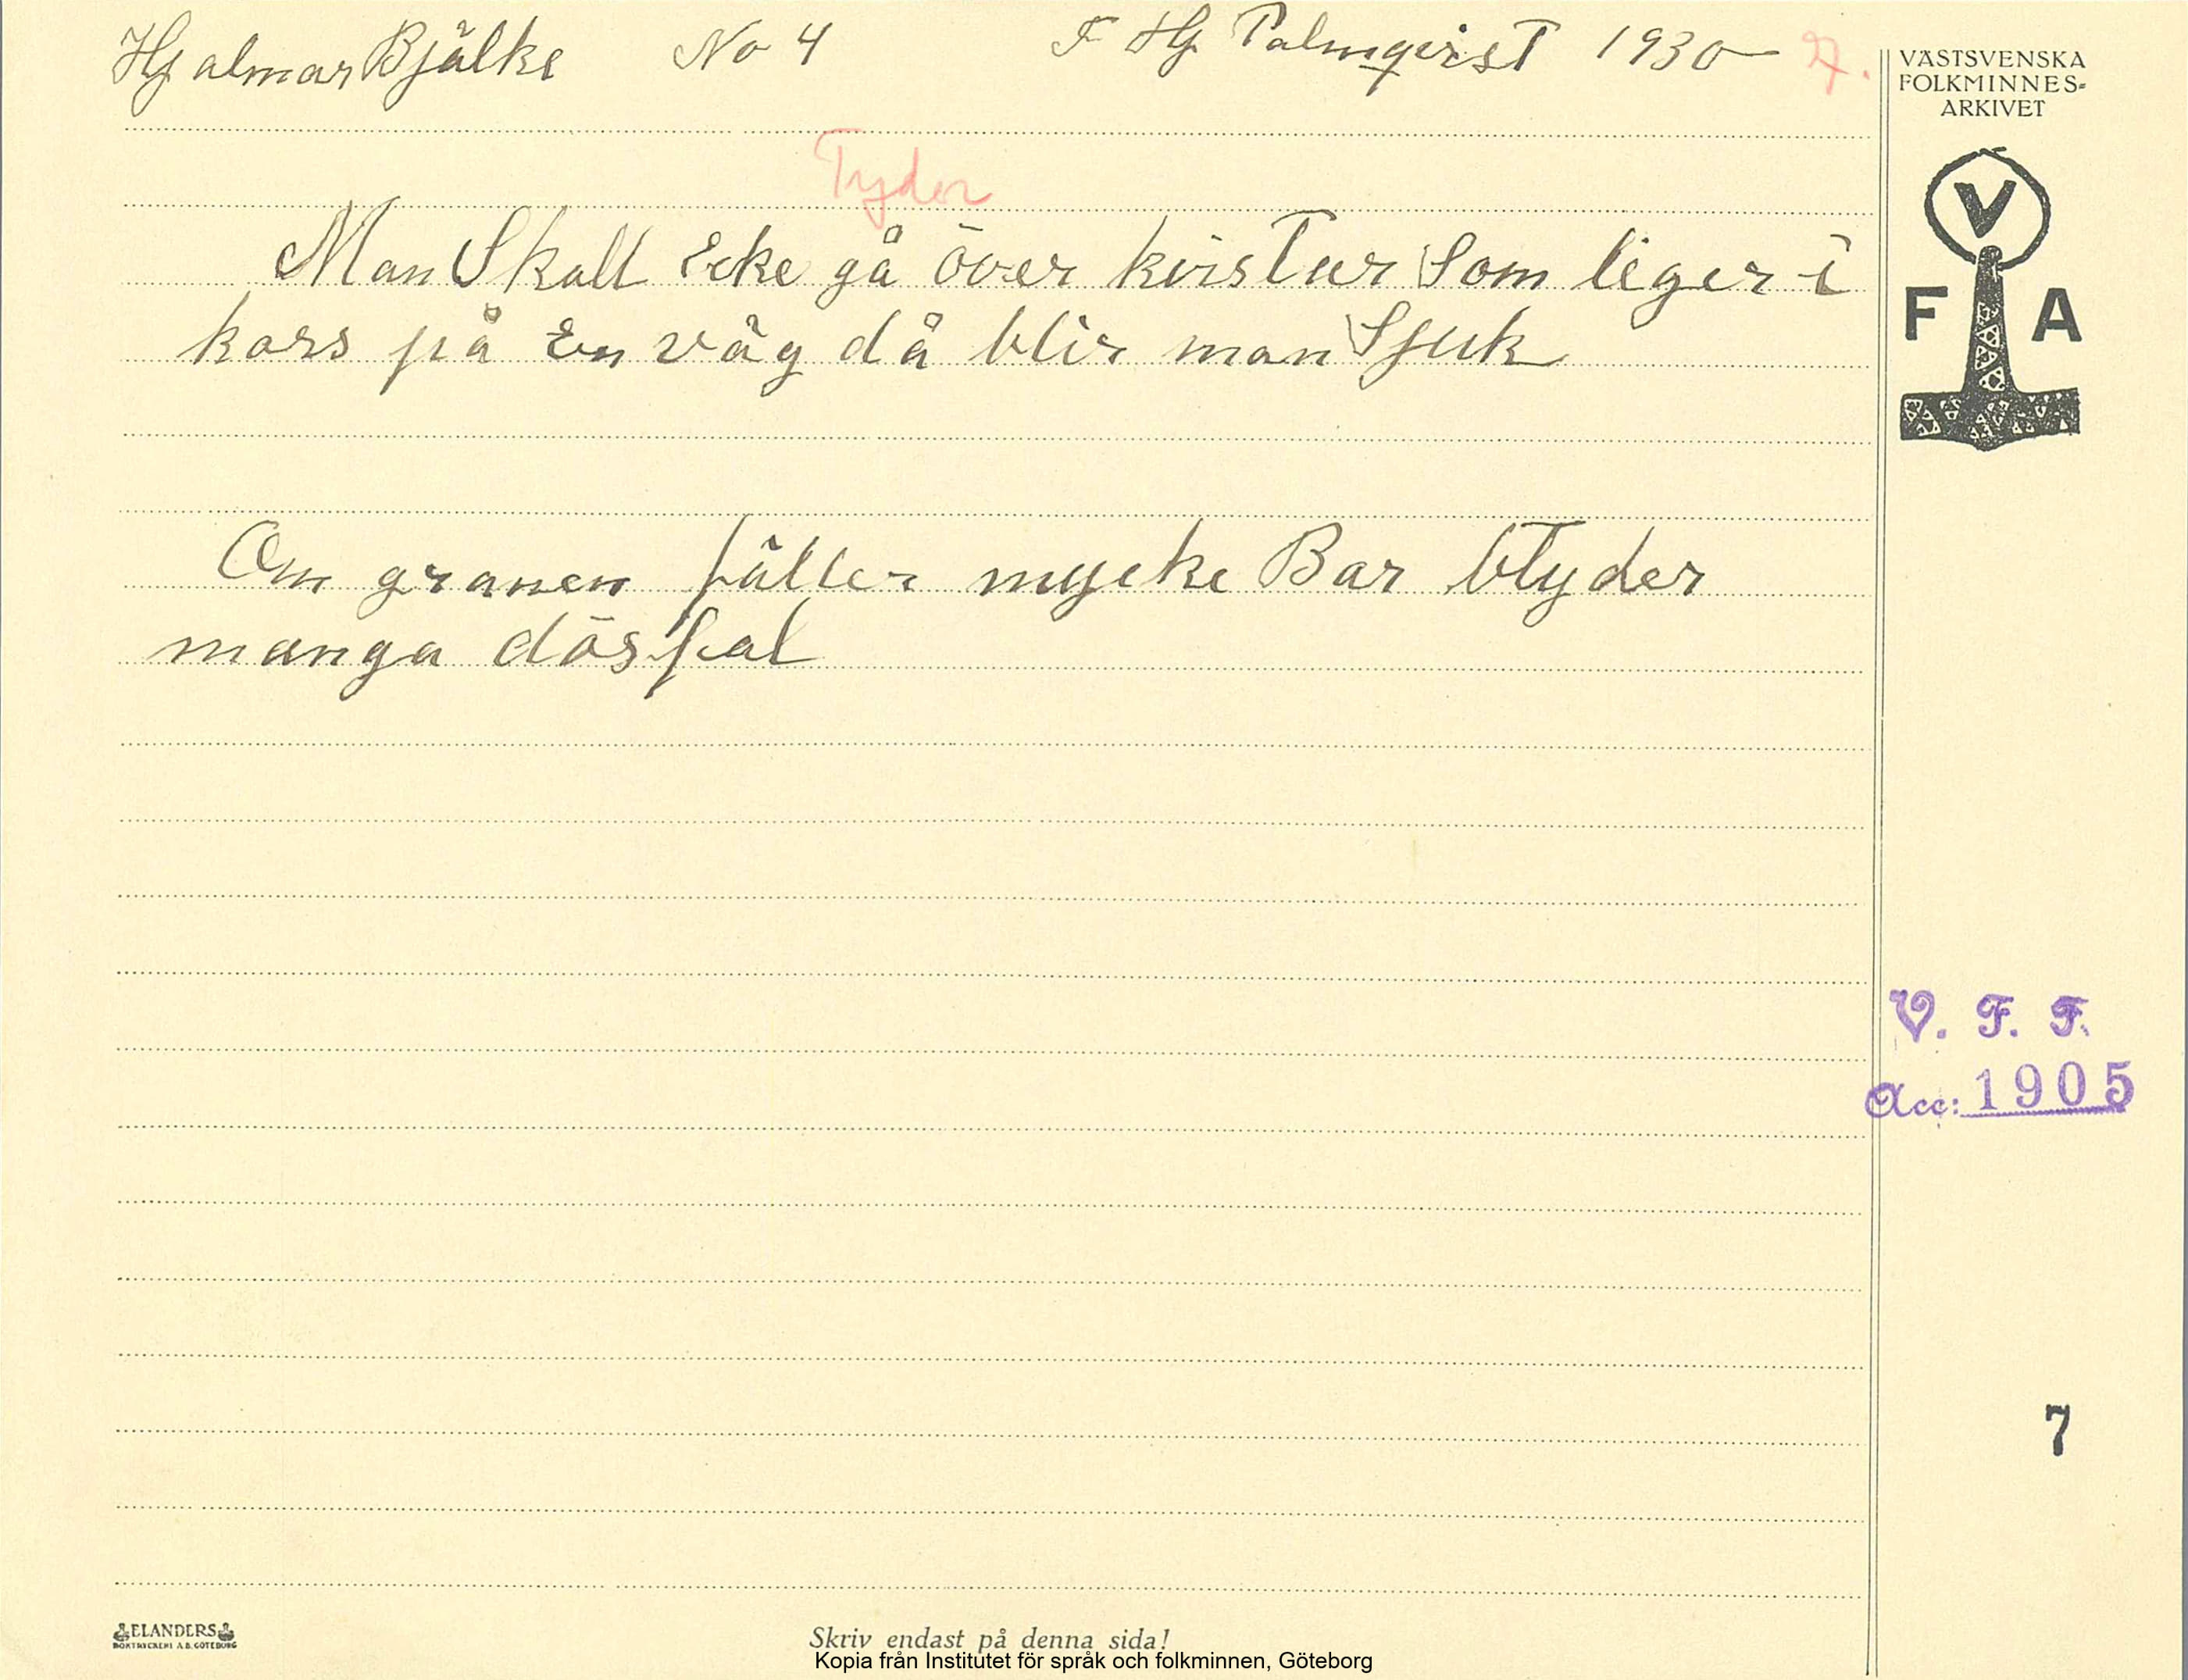 Hjalmar Bjälke No 4 F Hj Palmqvist 1930 7.
VÄSTSVENSKA
FOLKMINNES-
ARKIVET
Tyder
Man Skall Ecke gå över kvistur Som liger i
kors på En väg då blir man Sjuk
V
F A
Om granen fäller mycke Bar btyder
manga dösfal
V. F. F.
Acc: 1905
7
ELANDERS
BOKTRYCKERI A.B. GÖTEBORG
Skriv endast på denna sida!
Kopia från Institutet för språk och folkminnen, Göteborg